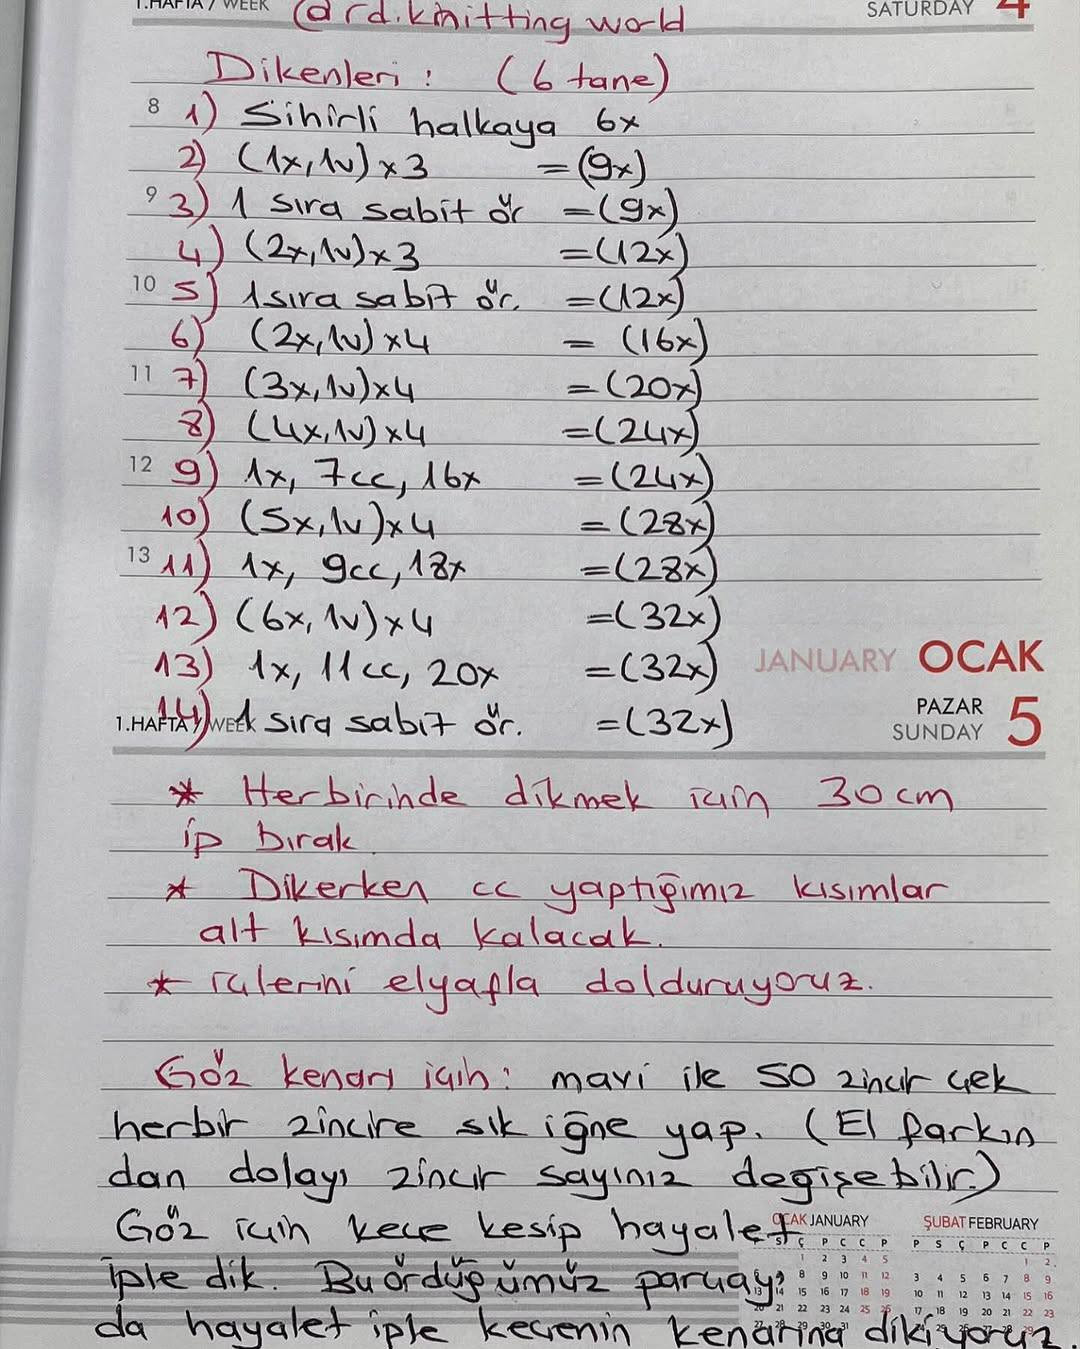 1.HAFTA / WEEK @rd.knitting world SATURDAY 4
Dikenleri : (6 tane)
8 1) Sihirli halkaya 6x
2) (1x,1v)x3 =(9x)
9 3) 1 sıra sabit ör =(9x)
4) (2x,1v)x3 =(12x)
10 5) 1 sıra sabit ör. =(12x)
6) (2x,1v)x4 = (16x)
11 7) (3x,1v)x4 =(20x)
8) (4x,1v)x4 =(24x)
12 9) 1x, 7cc, 16x =(24x)
10) (5x,1v)x4 =(28x)
13 11) 1x, 9cc, 18x =(28x)
12) (6x,1v)x4 =(32x)
13) 1x, 11cc, 20x =(32x)
JANUARY OCAK
14) 1 sıra sabit ör. =(32x)
1.HAFTA / WEEK
PAZAR
SUNDAY 5
* Herbirinde dikmek için 30 cm
ip bırak
* Dikerken cc yaptığımız kısımlar
alt kısımda kalacak.
* içlerini elyafla dolduruyoruz.
Göz kenarı için: mavi ile 50 zincir çek
herbir zincire sık iğne yap. (El farkın
dan dolayı zincir sayınız değişebilir.)
Göz için keçe kesip hayalet
iple dik. Bu ördüğümüz parçayı
da hayalet iple keçenin kenarına dikiyoruz.
OCAK JANUARY
S Ç P C C P
1 2 3 4 5
8 9 10 11 12
14 15 16 17 18 19
21 22 23 24 25 26
ŞUBAT FEBRUARY
P S Ç P C C P
1 2
3 4 5 6 7 8 9
10 11 12 13 14 15 16
17 18 19 20 21 22 23